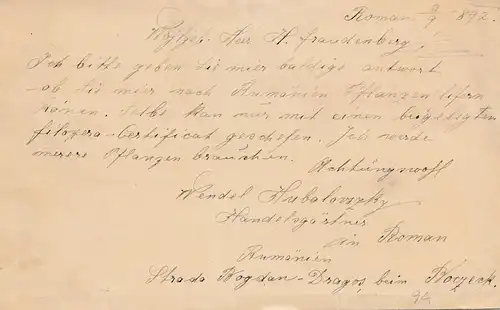 Roman 9/9 892.
Wohlgeb. Herr H. fraudenberg,
Ich bitte geben Sie mier baldige antwort
ob Sie mier nach Rumänien Pflanzen lifern
könen. Selbe kan nur mit einen beigelegten
filoxera-Certificat geschefen. Ich werde
merere Pflanzen brauchen.
Achtungwohl
Wendel Hubalovzky
Handelsgärtner
in Roman
Rumänien
Strada Bogdan-Dragos, beim
94